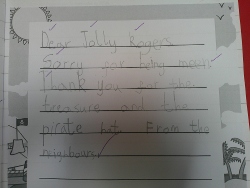 Dear Jolly Rogers
Sorry for being mean
Thank you for the
treasure and the
pirate hat. From the
neighbours